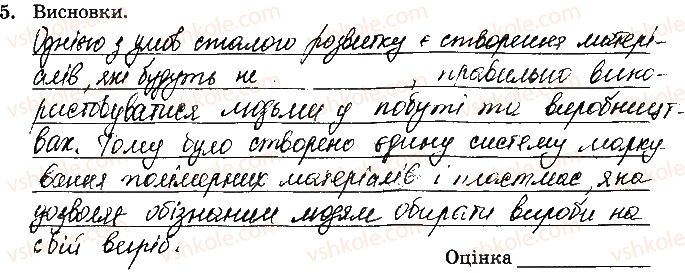 5. Висновки.
Однією з умов сталого розвитку є створення матері-
алів, які будуть не , правильно вико-
ристовуватися людьми у побуті та виробницт-
вах. Тому було створено єдину систему марку
вання полімерних матеріалів і пластмас, яка
дозволяє обізнаним людям обирати вироби на
свій виріб.
Оцінка